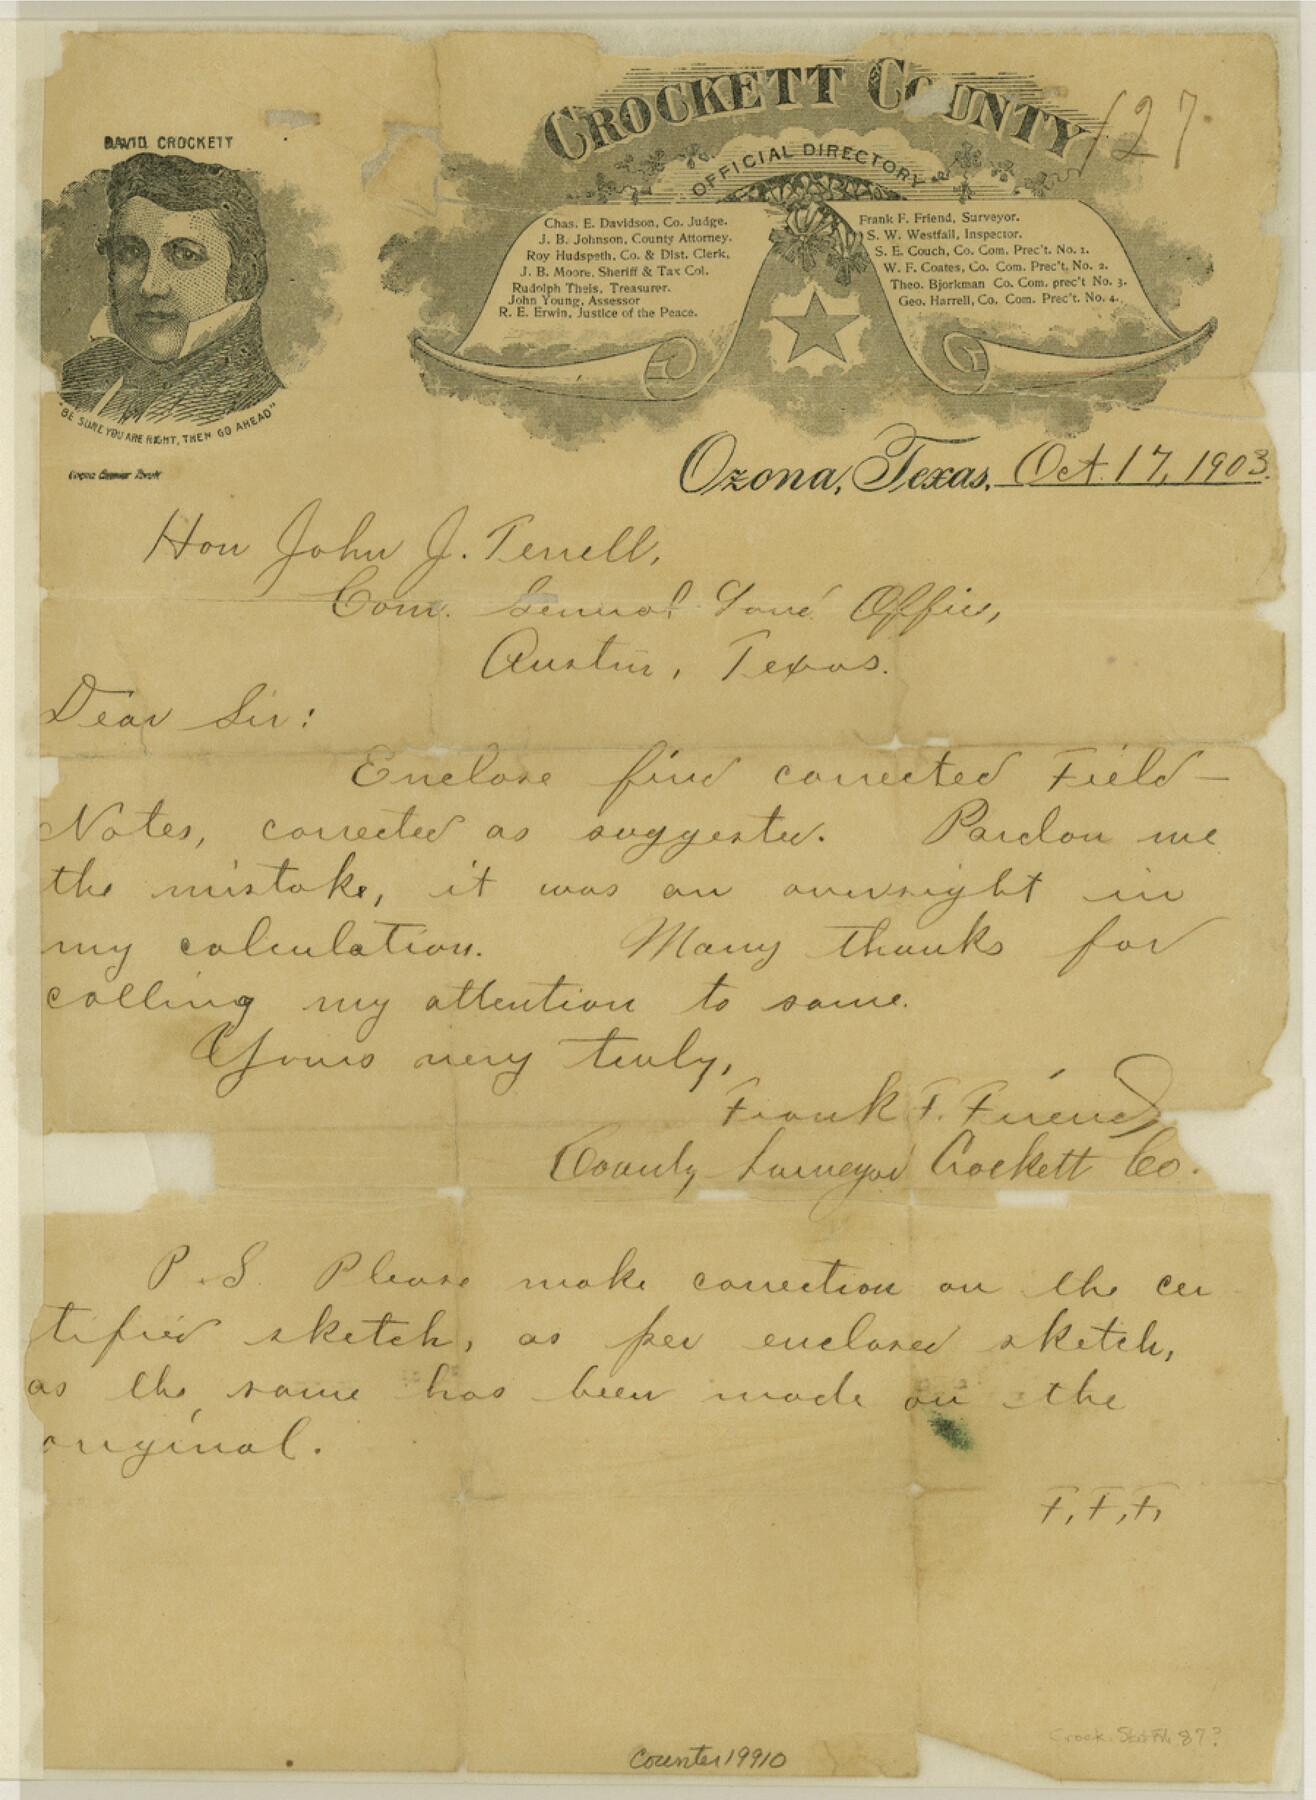 CROCKETT COUNTY
127
OFFICIAL DIRECTORY
DAVID CROCKETT
Chas. E. Davidson, Co. Judge.
J. B. Johnson, County Attorney.
Roy Hudspeth, Co. & Dist. Clerk,
J. B. Moore, Sheriff & Tax Col.
Rudolph Theis, Treasurer.
John Young, Assessor
R. E. Erwin, Justice of the Peace.
Frank F. Friend, Surveyor.
S. W. Westfall, Inspector.
S. E. Couch, Co. Com. Prec't. No. 1.
W. F. Coates, Co. Com. Prec't, No. 2.
Theo. Bjorkman Co. Com. prec't No. 3.
Geo. Harrell, Co. Com. Prec't. No. 4.
"BE SURE YOU ARE RIGHT, THEN GO AHEAD"
Ozona, Texas, Oct. 17, 1903.
Hon John J. Terrell,
Com. General Land Office,
Austin, Texas.
Dear Sir:
Enclose find corrected Field-
Notes, corrected as suggested. Pardon me
the mistake, it was an oversight in
my calculation. Many thanks for
calling my attention to same.
Yours very truly,
Frank F. Friend
County Surveyor Crockett Co.
P.S. Please make correction on the cer
tified sketch, as per enclosed sketch,
as the same has been made on the
original.
F, F, F,
Crock. Sk. File 87?
counter 19910